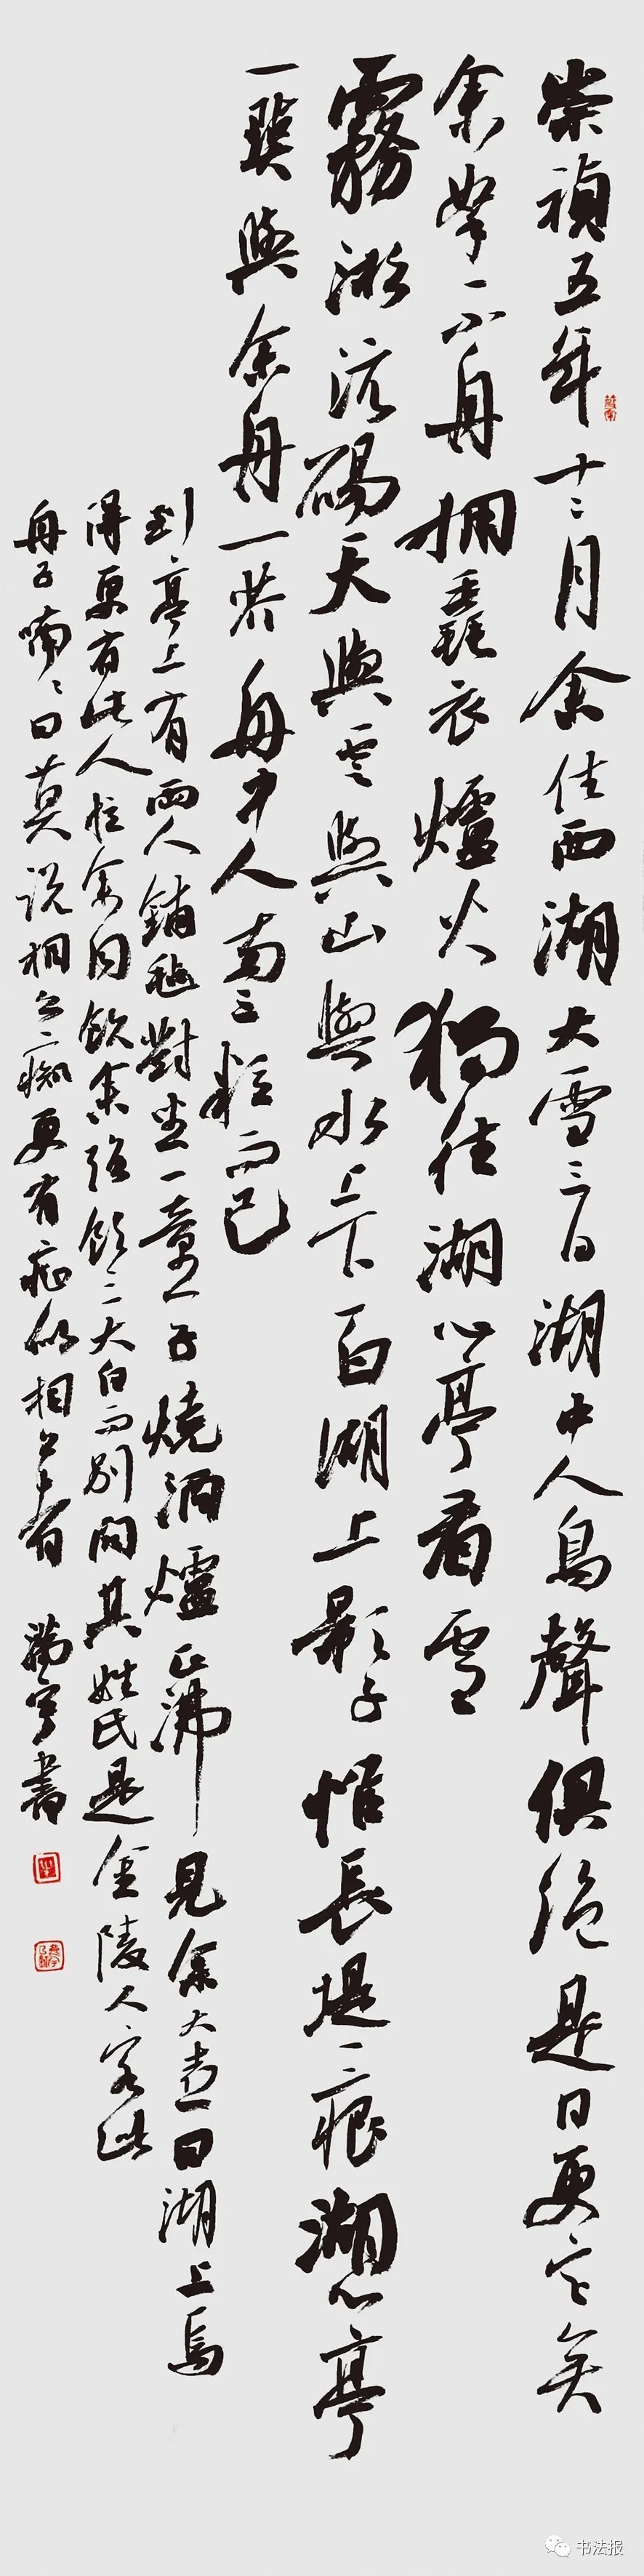 崇禎五年十二月余住西湖大雪三日湖中人鳥聲俱絕是日更定矣
余拏一小舟擁毳衣爐火獨往湖心亭看雪
霧凇沆碭天與雲與山與水上下一白湖上影子惟長堤一痕湖心亭
一點與余舟一芥舟中人兩三粒而已
到亭上有兩人鋪氈對坐一童子燒酒爐正沸見余大喜曰湖上焉
得更有此人拉余同飲余強飲三大白而別問其姓氏是金陵人客此
舟子喃々曰莫說相公癡更有癡似相公者 書
书法报